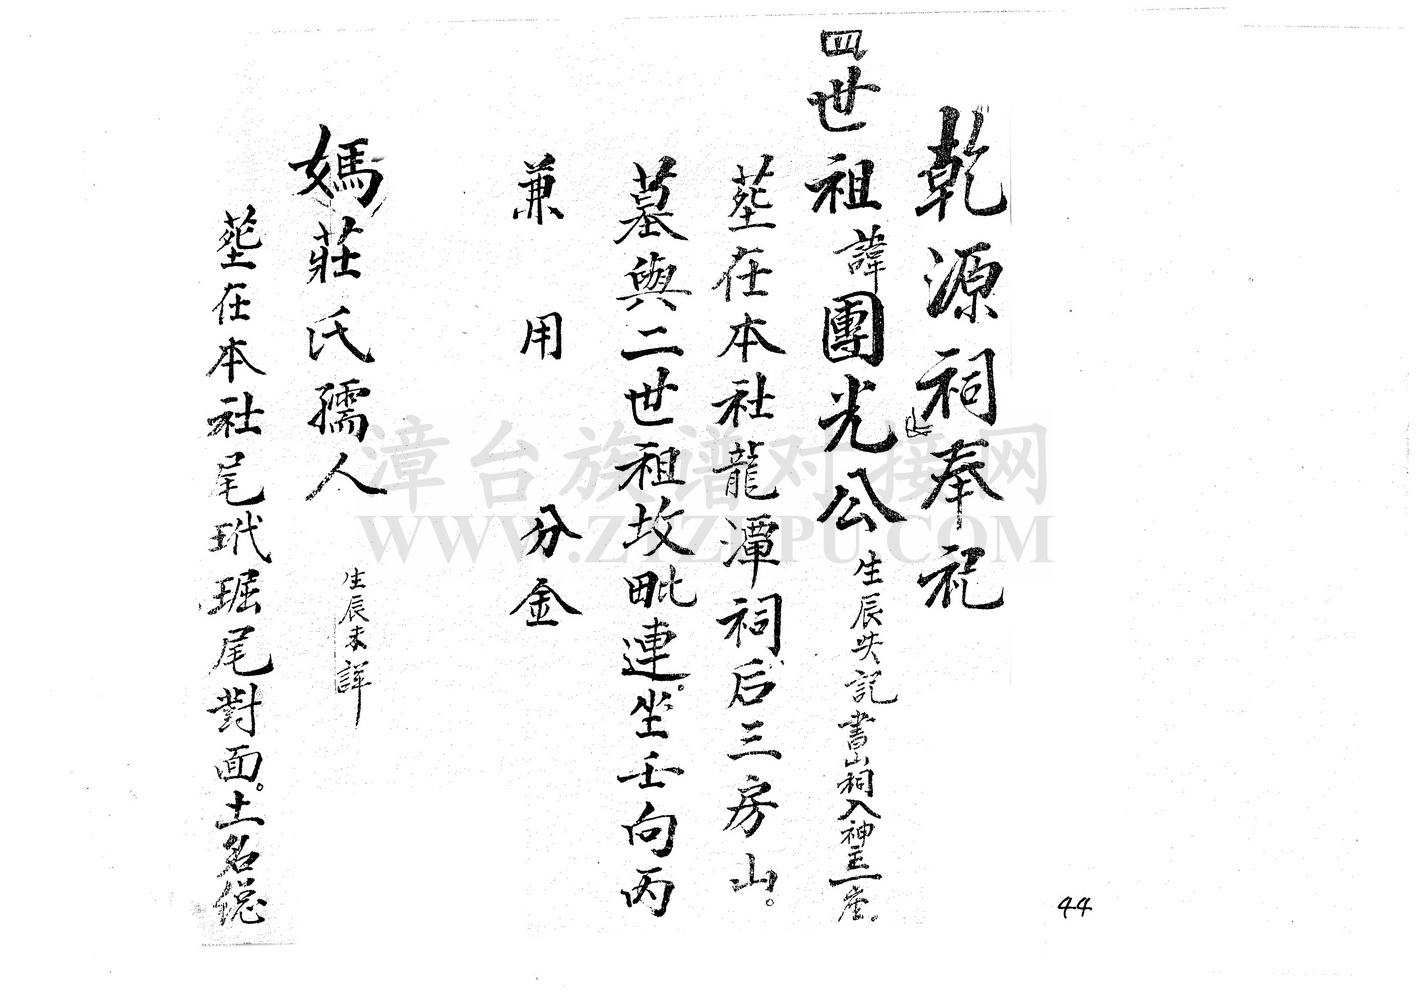 乾源祠奉祀
四世祖諱團光公 生辰失記 書山祠入神主一座。
塟在本社龍潭祠后三房山。
墓與二世祖坟毗連。坐壬向丙
兼 用 分金
媽莊氏孺人 生辰未詳
塟在本社尾玳琚尾對面。土名
44
漳台族谱对接网
WWW.ZTZUPU.COM